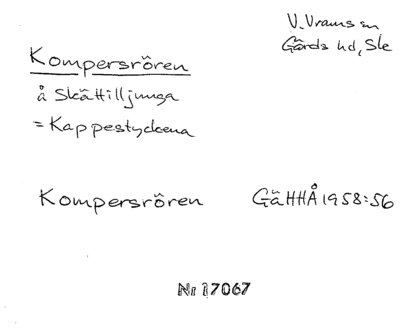 V. Vrams sn
Gärds hd, Ske
Kompersrören
å Skättilljunga
= Kappestyckena
Kompersrören GäHHÅ 1958:56
Nr 17067